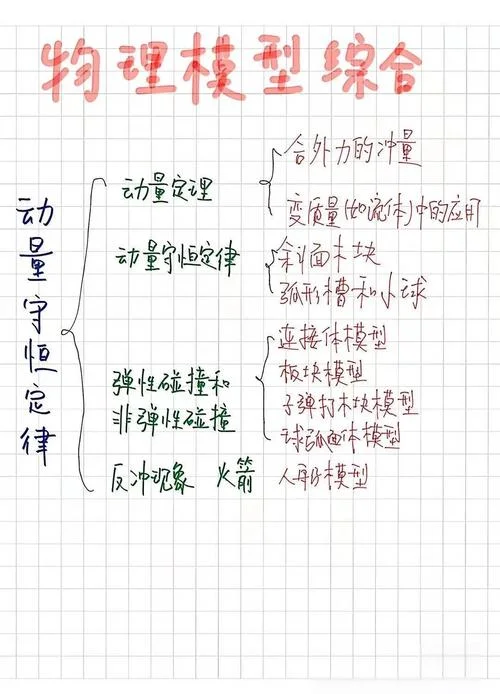 物理模型综合
动量守恒定律
动量定理
合外力的冲量
变质量(如流体)中的应用
动量守恒定律
斜面木块
弧形槽和小球
弹性碰撞和
非弹性碰撞
连接体模型
板块模型
子弹打木块模型
球弧面体模型
反冲现象 火箭 人船模型